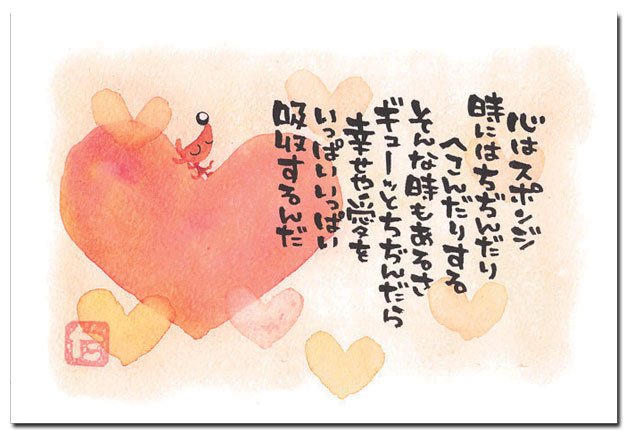 心はスポンジ
時にはちぢんだり
へこんだりする
そんな時もあるさ
ギューッとちぢんだら
幸せや愛を
いっぱいいっぱい
吸収するんだ
た